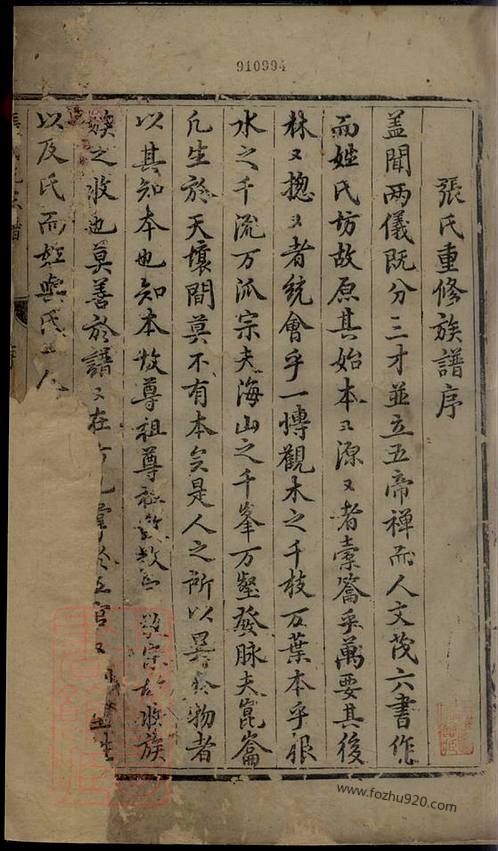 910994
張氏重修族譜序
盖聞两儀既分三才並立五帝禅而人文茂六書作
而姓氏坊故原其始本〻源〻者橐籥乎萬要其後
林〻揔〻者統會乎一博觀木之千枝万葉本乎根
水之千流万派宗夫海山之千峯万壑發脉夫崑崙
凢生於天壤間莫不有本矣是人之所以異於物者
以其知本也知本故尊祖尊祖故敬宗敬宗故收族
族之收也莫善於譜〻在
以及氏而姓與氏 人
www.fozhu920.com